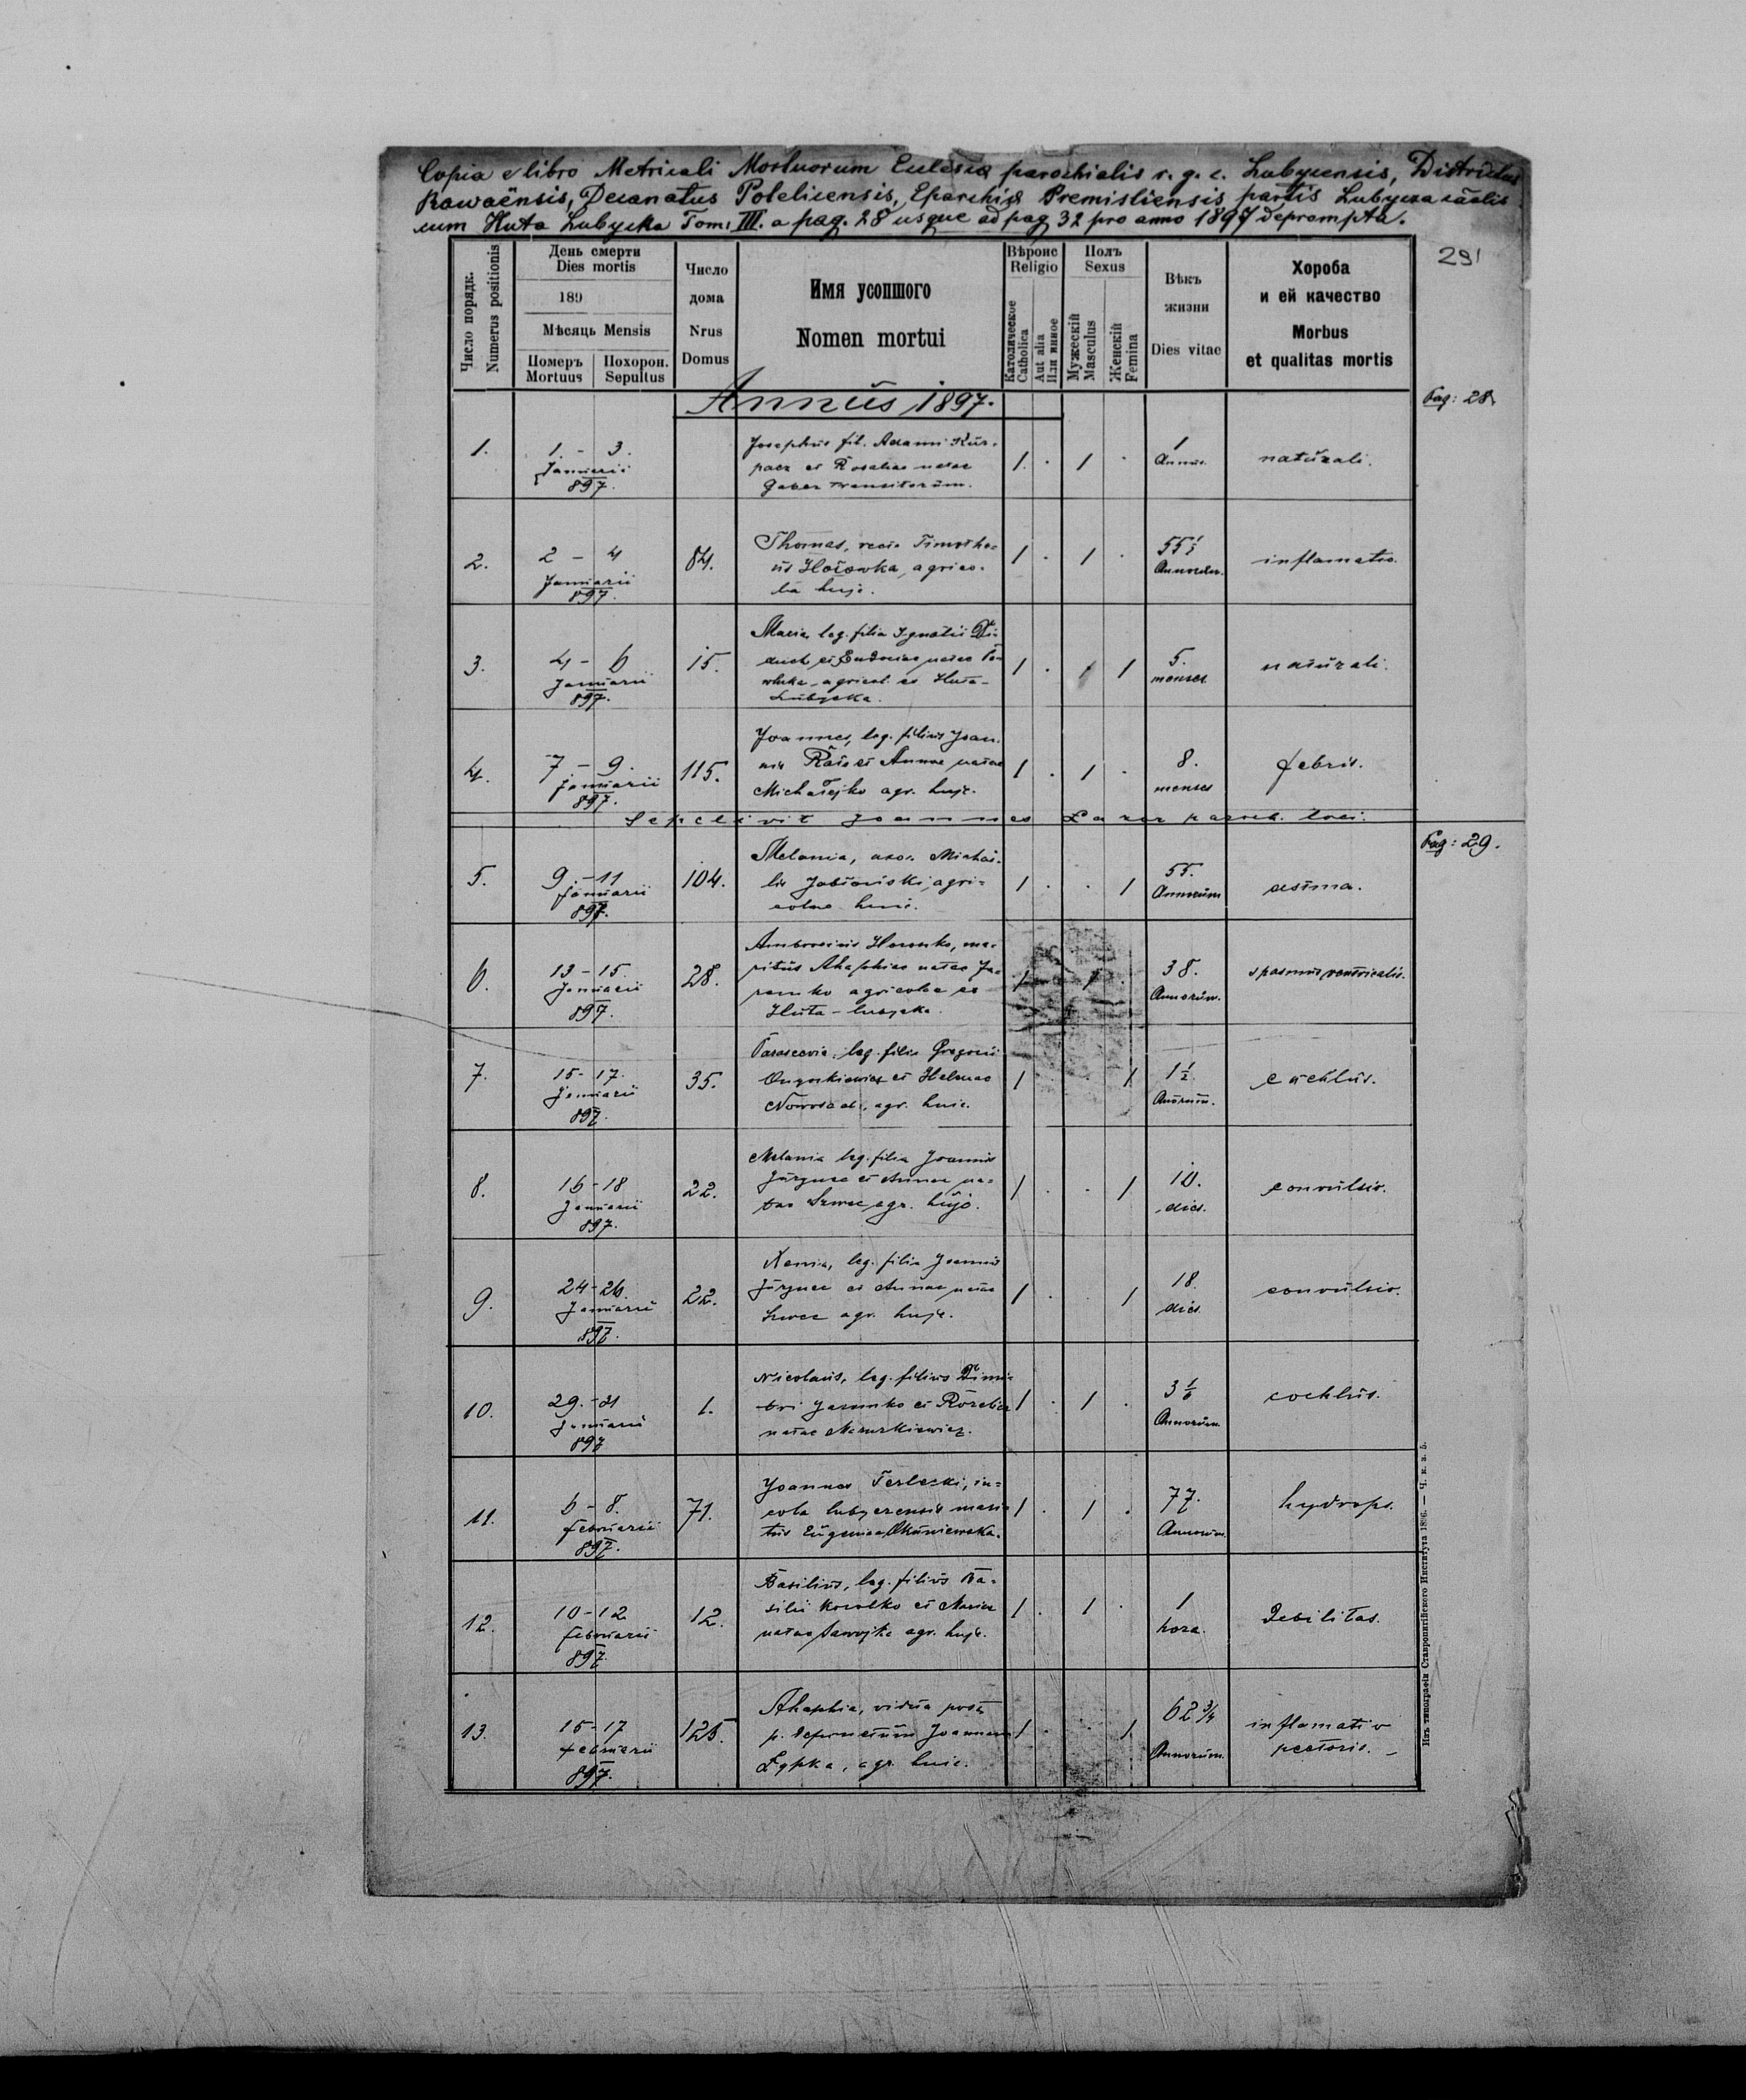 Copia e libro Metricali Mortuorum Eclesiæ parochialis r. g. c. Lubycensis, Districtus
Rawaënsis, Decanatus Potelicensis, Eparchiæ Premisliensis partis Lubycza
cum Huta Lubycka Tom: III. a pag. 28 usque ad pag 32 pro anno 1897 deprompta.
291
Число порядк.
Numerus positionis
День смерти
Dies mortis
189
Мѣсяць Mensis
Померъ
Mortuus
Похорон.
Sepultus
Число
дома
Nrus
Domus
Имя усопшого
Nomen mortui
Вѣроис
Religio
Католическое
Catholica
Aut alia
Или инное
Полъ
Sexus
Мужескій
Masculus
Женскій
Femina
Вѣкъ
жизни
Dies vitae
Хороба
и ей качество
Morbus
et qualitas mortis
Annus 1897.
Pag: 28.
1.
1. - 3.
Januarii
897.
Josephus fil. Adami Kur-
pacz et Rosaliae natae
transitorum.
1. . 1 .
1
Annus.
naturali.
2.
2 - 4
Januarii
897.
84.
Thomas, recte Timothe
us Hołowka, agrico-
la huj.
1 . 1 .
55
Annorum
inflamatio.
3.
4 - 6
Januarii
897.
15.
Maria, leg. filia Ignatii Di-
duch et Eudociae natae Pa-
agricol. ex Huta-
Lubycka.
1 . 1
5.
menses
naturali.
4.
7 - 9.
Januarii
897.
115.
Joannes, leg. filius Joan-
nis et Annae natae
Michałejko agr. hujc.
1 . 1 .
8.
menses
febris.
Sepelivit Joannes Lazar paroch. loci.
Pag: 29.
5.
9. - 11
Januarii
897.
104.
Melania, uxor Michaë-
lis Jabłoński, agri-
colae huic.
1 . . 1
55.
Annorum
astma.
6.
13 - 15.
Januarii
897.
28.
Ambrosius Horonko, ma-
ritus Ahaphiae natae Ja-
remko agricolae ex
Huta-lubycka.
1 1 .
38.
Annorum.
spasmus ventricalis.
7.
15 - 17.
Januarii
897.
35.
Parascevia, leg. filia Gregorii
et Helenae
Nowosad, agr. huic.
1 . . 1
1 1/2
Anorum.
cochlus.
8.
16 - 18
Januarii
897.
22.
Melania leg. filia Joannis
et Annae na-
tae Szwec agr. hujc.
1 . . 1
10.
dies.
convulsio.
9.
24 - 26.
Januarii
897.
22.
Xenia, leg. filia Joannis
et Annae natae
Szwec agr. hujc.
1 . . 1
18.
dies.
convulsio.
10.
29. - 31
Januarii
897
1.
Nicolaus, leg. filius Dimi-
tri Jaremko et Rozalia
natae Mazurkiewicz.
1 . 1 .
3 1/6
Annorum.
cochlus.
11.
6 - 8.
februarii
897.
71.
Joannes Terlecki, in-
cola lubyczensis mari-
tus Eugeniae Okuniewska.
1 . 1 .
77.
Annorum.
hydrops.
12.
10 - 12
februarii
897.
12.
Basilius, leg. filius Ba-
silii Kowalko et Mariae
natae Sawojka agr. hujc.
1 . 1 .
1
hora.
Debilitas.
13.
15 - 17
februarii
897.
125.
Ahaphia, vidua post
p. defunctum Joannem
Łypka, agr. huic.
1 . . 1.
62 3/4
Annorum.
inflamatio
pectoris.
Изъ типографіи Ставропигійского Института 1896. — Ч. к. а. 5.